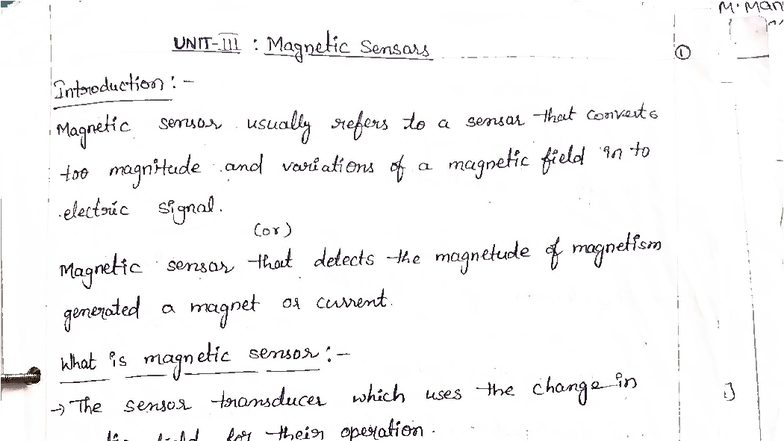 M. Man
UNIT-III : Magnetic Sensors
1
Introduction :-
Magnetic sensor usually refers to a sensor that converts
too magnitude and variations of a magnetic field in to
electric signal.
(or)
Magnetic sensor that detects the magnetude of magnetism
generated a magnet or current.
What is magnetic sensor :-
→ The sensor transducer which uses the change in
field for their operation.